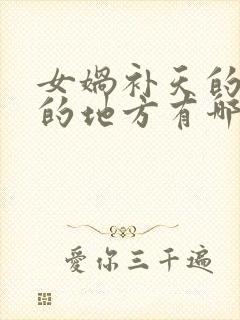 女娲补天的
的地方有哪
愛你三千遍